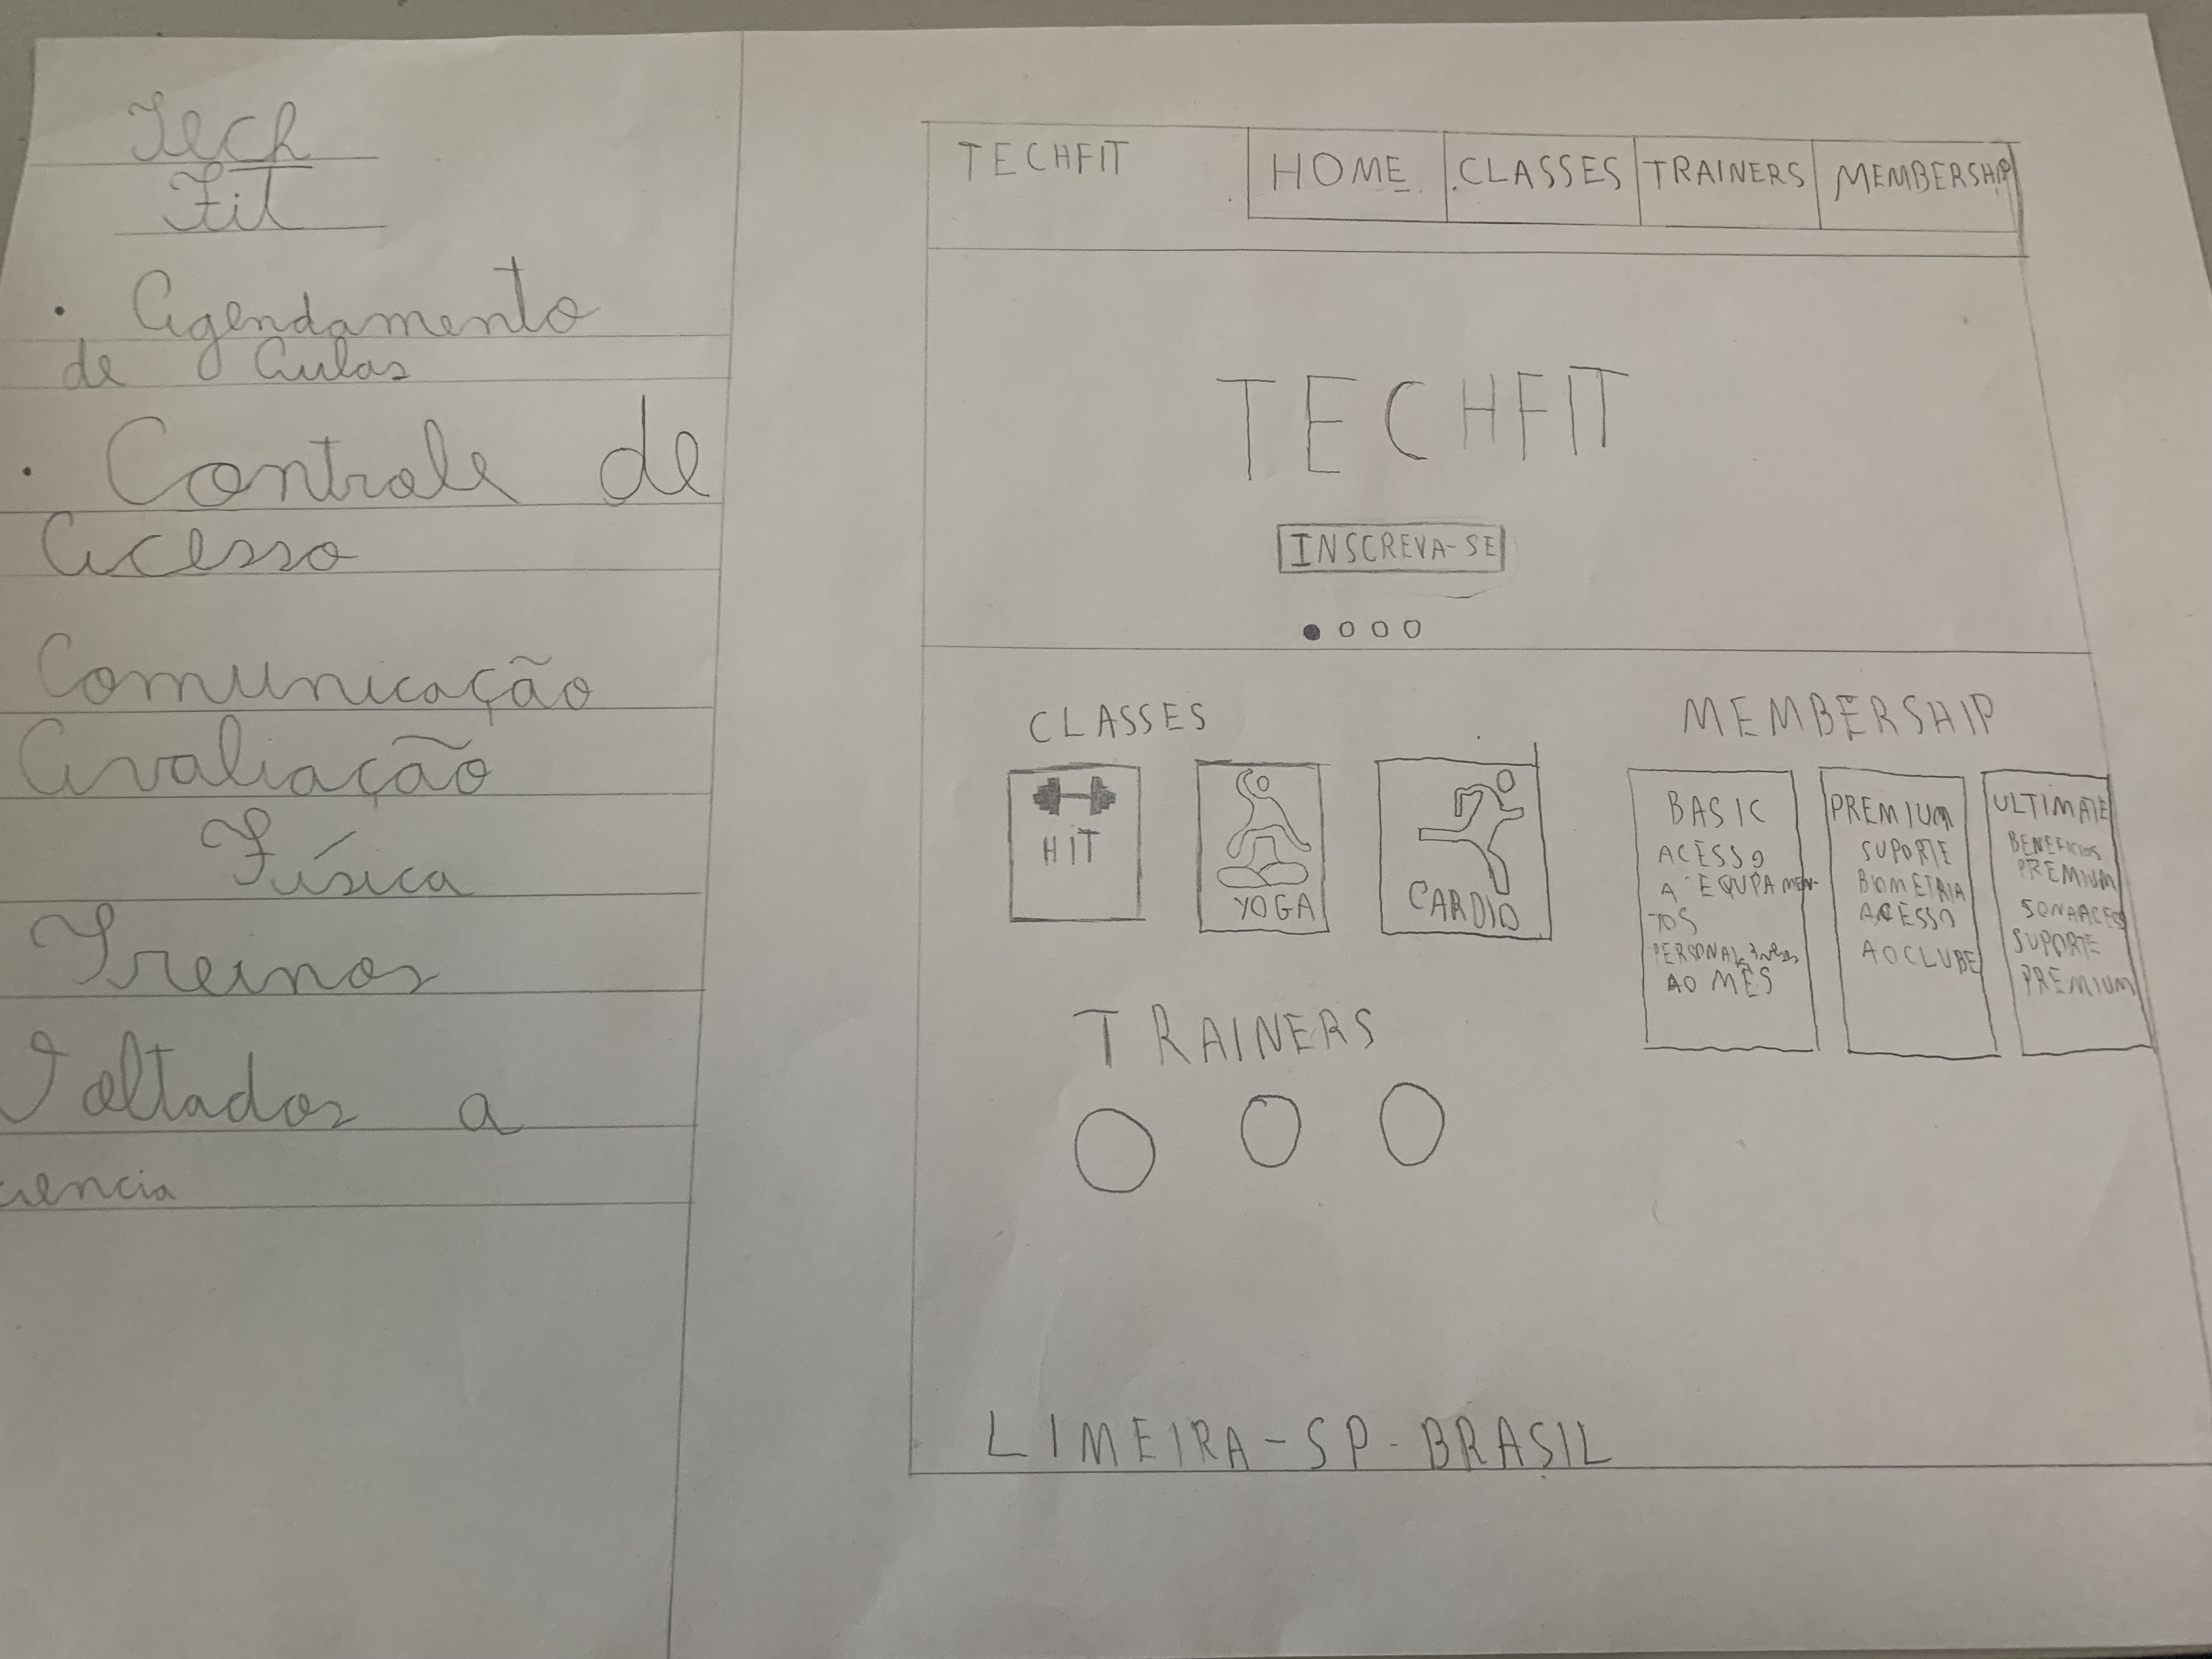 Tech
Fit
• Agendamento
de Aulas
• Controle de
Acesso
Comunicação
Avaliação
Física
Treinos
a
TECHFIT
HOME
CLASSES
TRAINERS
MEMBERSHIP
TECHFIT
INSCREVA-SE
CLASSES
HIT
YOGA
CARDIO
MEMBERSHIP
BASIC
ACESSO
A EQUIPAMEN-
TOS
PERSONAL
AO MÊS
PREMIUM
SUPORTE
BIOMETRIA
ACESSO
AO CLUBE
ULTIMATE
BENEFICIOS
PREMIUM
SUPORTE
PREMIUM
TRAINERS
LIMEIRA-SP-BRASIL